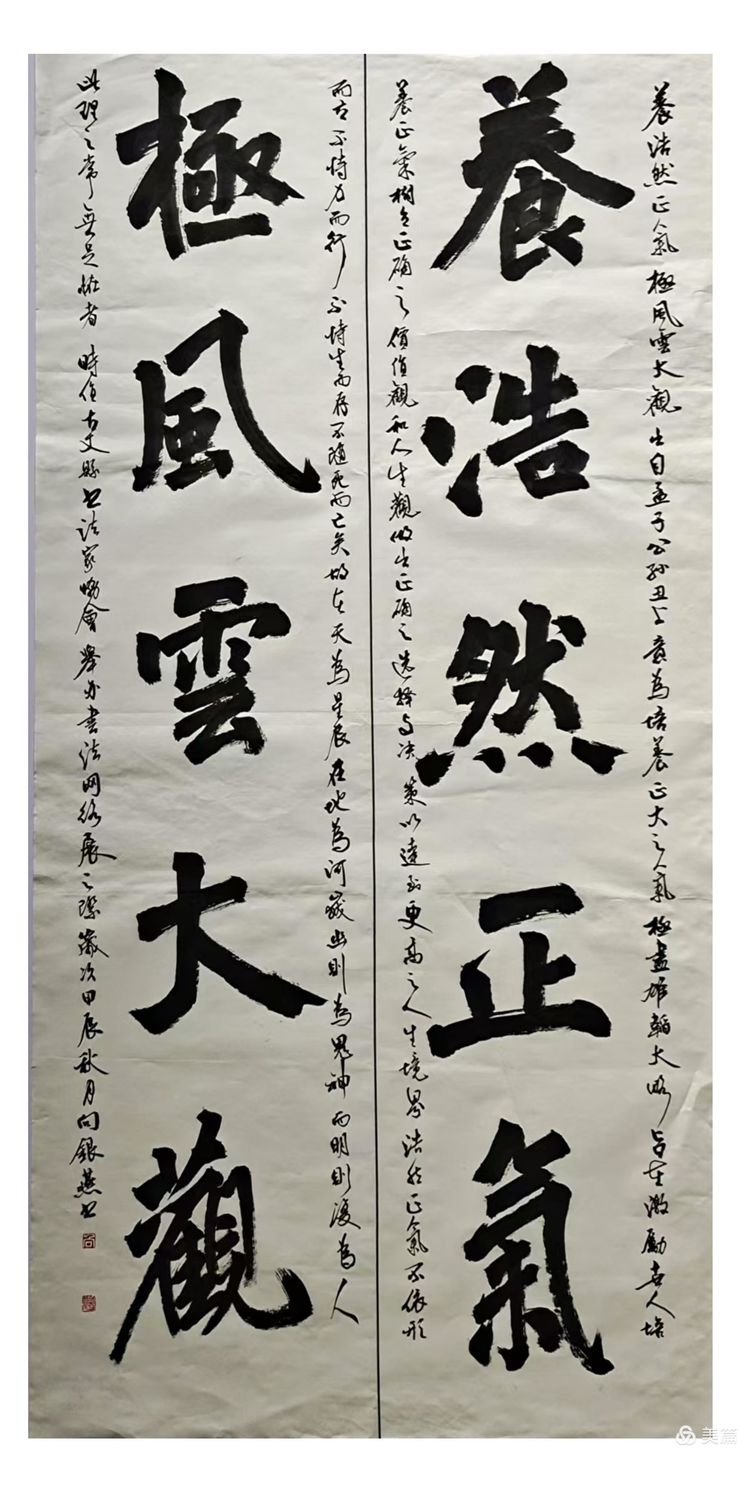 養浩然正氣極風雲大觀出自孟子公孫丑上意為培養正大之氣極盡雄韜大略旨在激勵世人培
養浩然正氣
養正氣樹立正确之價值觀和人生觀做出正确之选择与决策以達到更高之人生境界浩然正氣不依形
而立不恃力而行不恃生而存不隨死而亡矣故在天為星辰在地為河嶽幽則為鬼神而明則復為人
極風雲大觀
此理之常無足怪者 時值古丈縣書法家協會舉办書法网络展之際歲次甲辰秋月向銀燕書
美篇